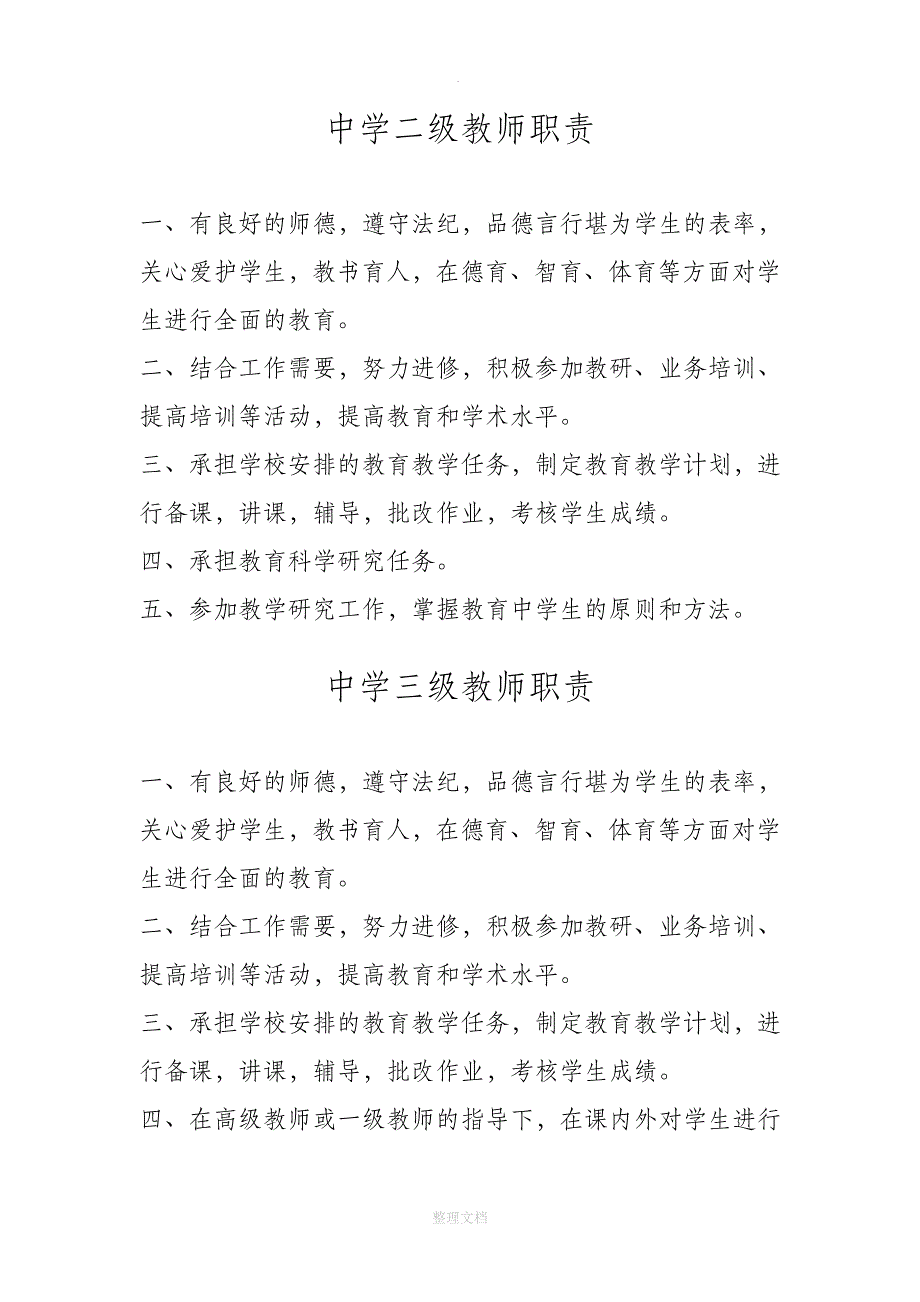 中学二级教师职责
一、有良好的师德，遵守法纪，品德言行堪为学生的表率，
关心爱护学生，教书育人，在德育、智育、体育等方面对学
生进行全面的教育。
二、结合工作需要，努力进修，积极参加教研、业务培训、
提高培训等活动，提高教育和学术水平。
三、承担学校安排的教育教学任务，制定教育教学计划，进
行备课，讲课，辅导，批改作业，考核学生成绩。
四、承担教育科学研究任务。
五、参加教学研究工作，掌握教育中学生的原则和方法。
中学三级教师职责
一、有良好的师德，遵守法纪，品德言行堪为学生的表率，
关心爱护学生，教书育人，在德育、智育、体育等方面对学
生进行全面的教育。
二、结合工作需要，努力进修，积极参加教研、业务培训、
提高培训等活动，提高教育和学术水平。
三、承担学校安排的教育教学任务，制定教育教学计划，进
行备课，讲课，辅导，批改作业，考核学生成绩。
四、在高级教师或一级教师的指导下，在课内外对学生进行
整理文档